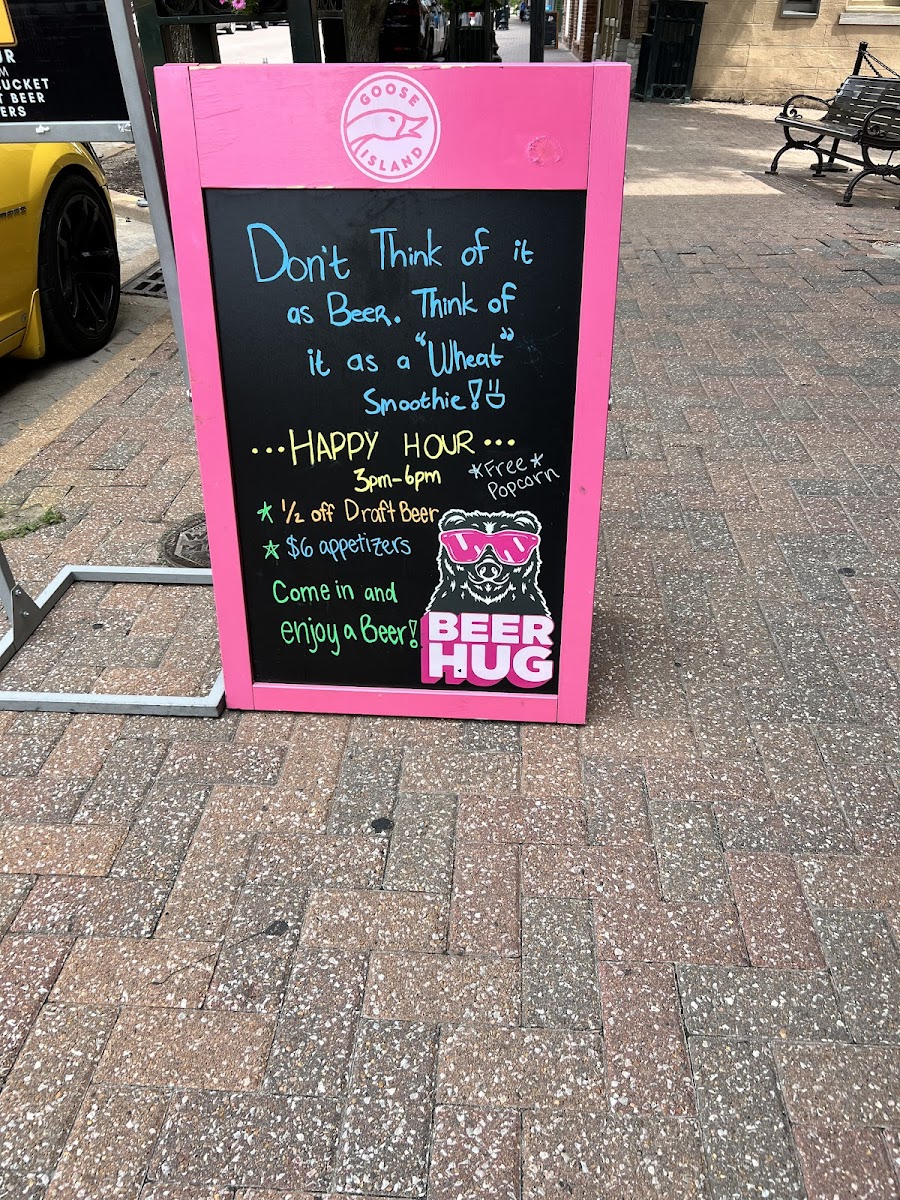 UR
M
UCKET
T BEER
ERS
GOOSE
ISLAND
Don't Think of it
as Beer. Think of
it as a "Wheat"
Smoothie!
...HAPPY HOUR...
3pm-6pm
*Free*
Popcorn
1/2 off Draft Beer
$6 appetizers
Come in and
enjoy a Beer!
BEER
HUG